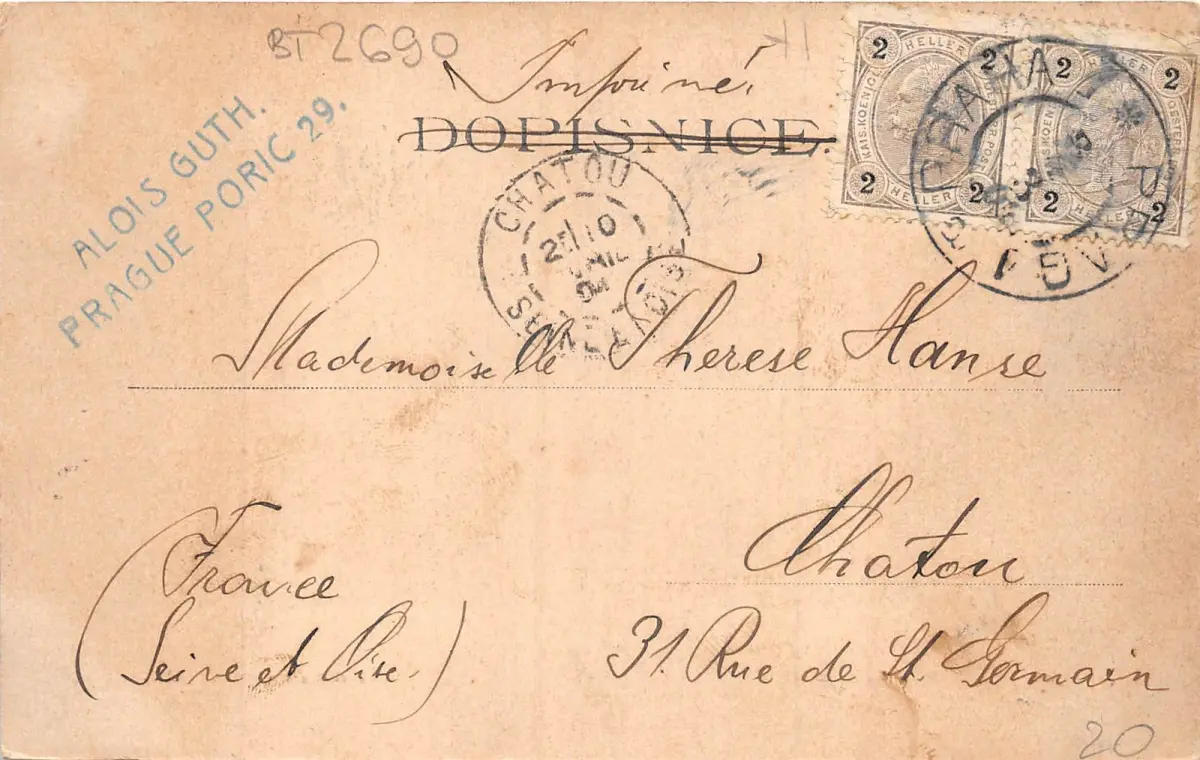 BT 2690
Imprimé.
DOPISNICE.
ALOIS GUTH.
PRAGUE PORIC 29.
2 HELLER 2
KAIS. KOENIGL.
2 HELLER 2
2 2
2 HELLER 2
PRAHA
PRAG
CHATOU
25 10
SEINE-ET-OISE
Mademoiselle Therese Hanse
Chatou
31. Rue de St. Germain
(France
Seine et Oise.)
20